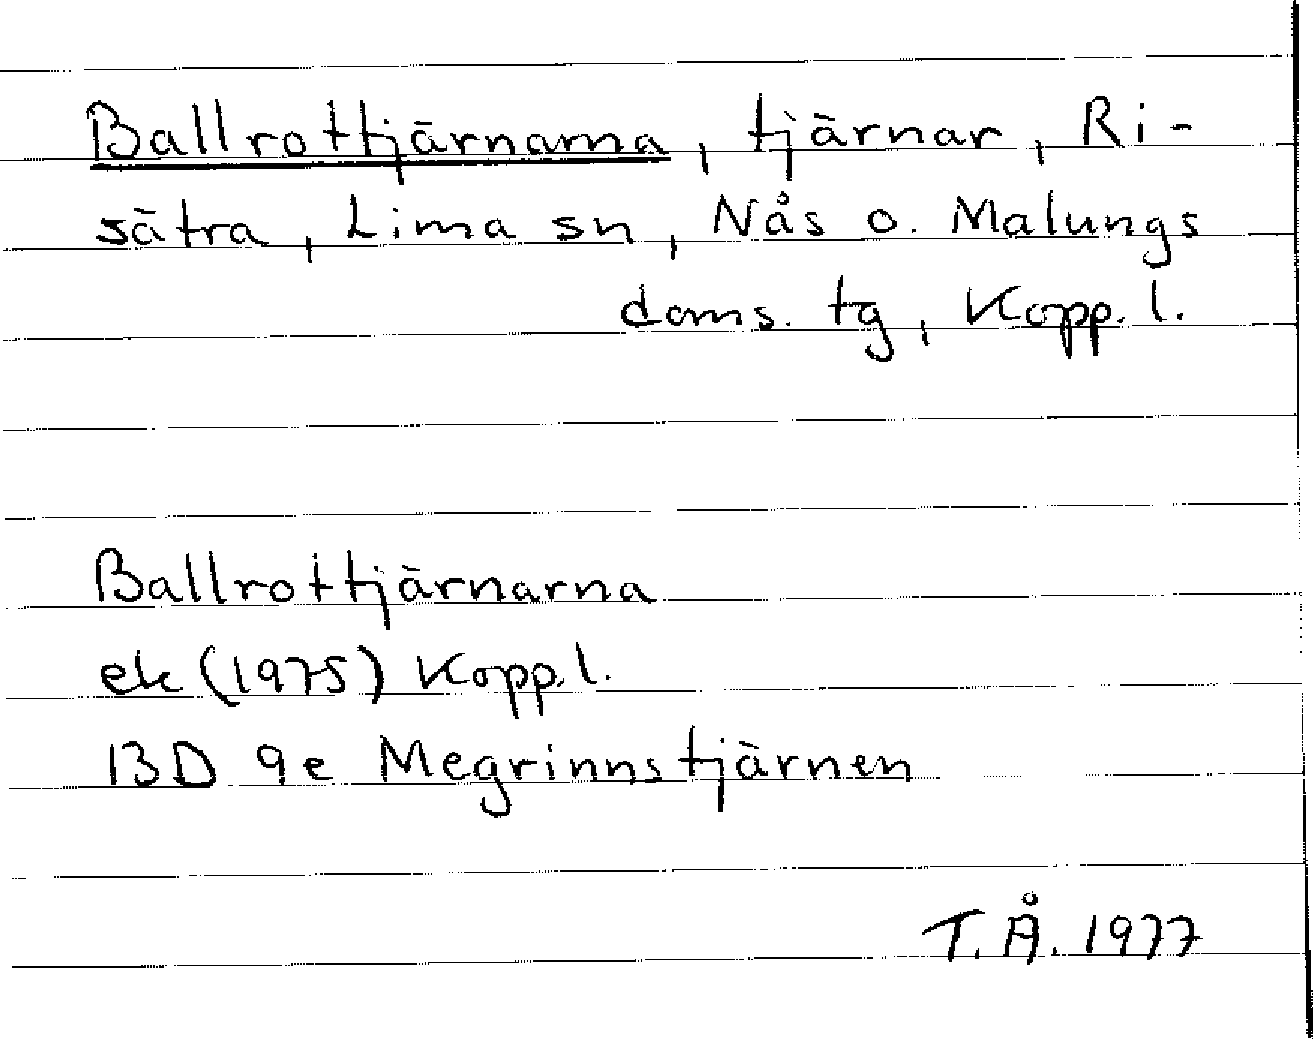 Ballrottjärnarna, tjärnar, Ri-
sätra, Lima sn, Nås o. Malungs
doms. tg, Kopp. l.
Ballrottjärnarna
ek (1975) Kopp. l.
13D 9e Megrinnstjärnen
T. Å. 1977